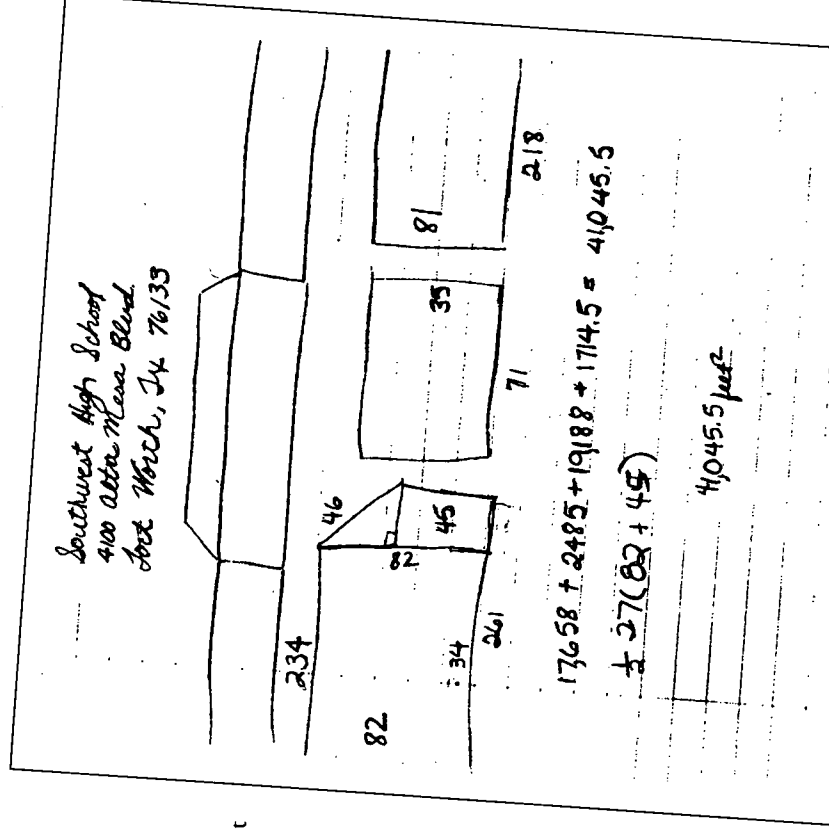 Southwest High School
4100 Alta Mesa Blvd.
Fort Worth, TX 76133
234
46
82
82
45
34
261
35
71
81
218
17,658 + 2485 + 19,188 + 1714.5 = 41,045.5
½ 27(82 + 45)
41,045.5 feet²